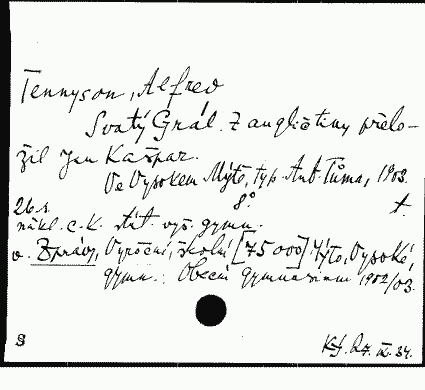 Tennyson, Alfred
Svatý Grál. Z angličtiny přelo-
žil Jan Kašpar.
Ve Vysokém Mýtě, typ. Ant. Tůma, 1903.
26 s. 8°
nákl. c. k. stát. vyš. gymn.
v. Zprávy, Výroční, školní [75000] Mýto, Vysoké,
gymn.: Obecní gymnasium 1902/03.
27. 34.